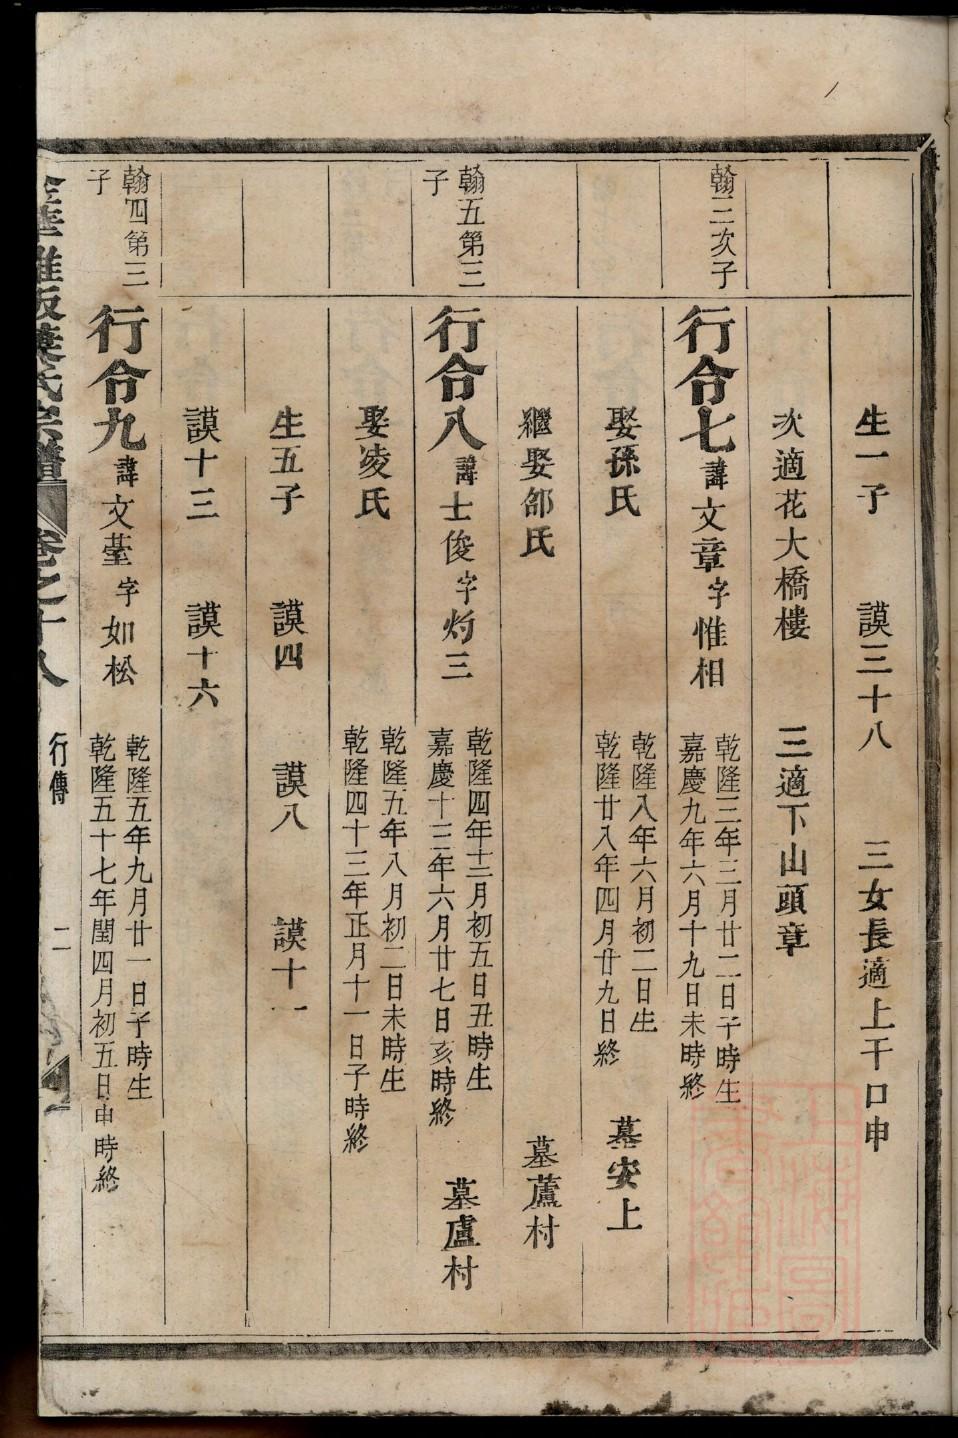 生一子 謨三十八 三女長適上干口申
次適花大橋樓 三適下山頭章
翰三次子
行令七 諱文章字惟相 乾隆三年三月廿二日子時生
嘉慶九年六月十九日未時終
娶孫氏 乾隆八年六月初二日生
乾隆廿八年四月廿九日終 墓安上
繼娶邵氏 墓蘆村
翰五第三
子
行令八 諱士俊字灼三 乾隆四年十三月初五日丑時生
嘉慶十三年六月廿七日亥時終 墓盧村
娶凌氏 乾隆五年八月初二日未時生
乾隆四十三年正月十一日子時終
生五子 謨四 謨八 謨十一
謨十三 謨十六
翰四第三
子
行令九 諱文薹字如松 乾隆五年九月廿一日子時生
乾隆五十七年閏四月初五日申時終
葉氏宗譜 卷之十八 行傳 二